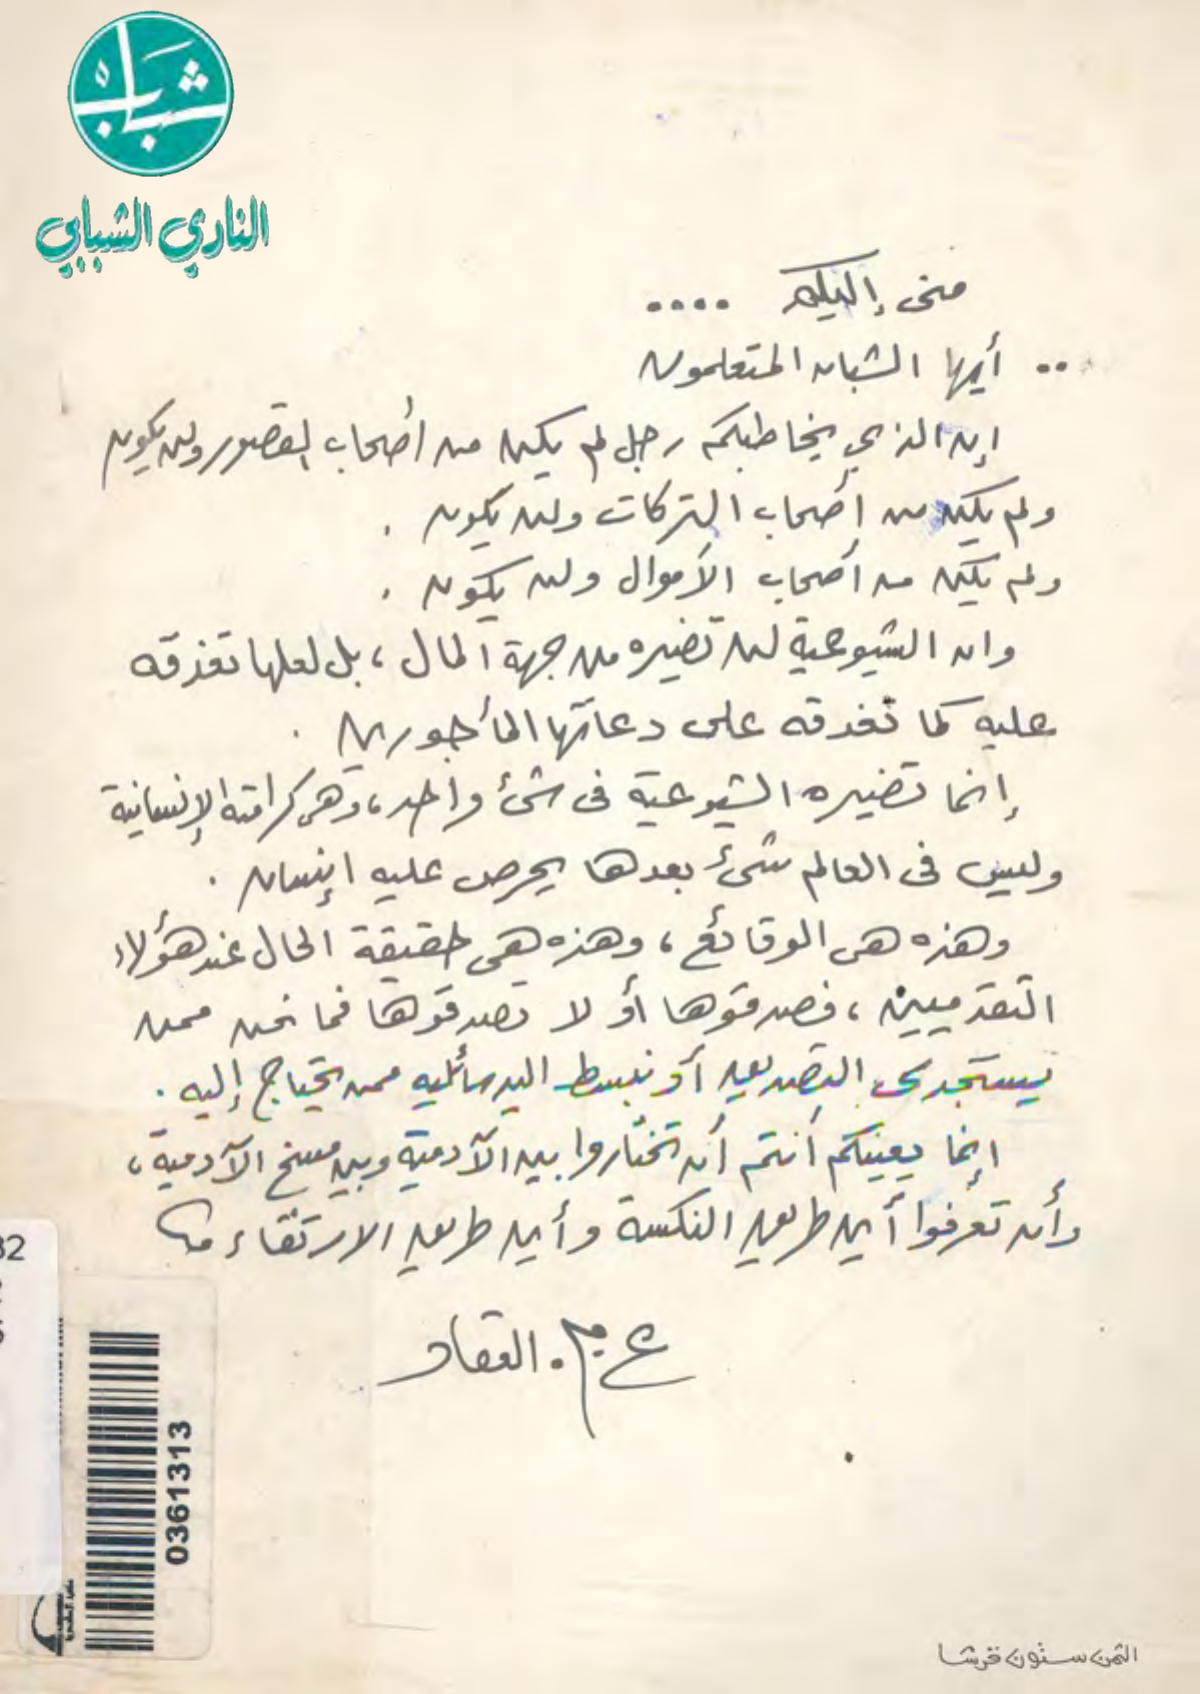 شباب
النادي الشبابي
منى إليكم ....
.. أيها الشبان المتعلمون
إن الذي يخاطبكم رجل لم يكن من أصحاب القصور ولن يكون
ولم يكن من أصحاب التركات ولن يكون .
ولم يكن من أصحاب الأموال ولن يكون .
وان الشيوعية لن تضيره من جهة المال ، بل لعلها تغدقه
عليه كما تغدقه على دعاتها المأجورين .
إنما تضيره الشيوعية فى شئ واحد ، وهى كرامته الإنسانية
وليس فى العالم شئ بعدها يحرص عليه إنسان .
وهذه هى الوقائع ، وهذه هى حقيقة الحال عند هؤلاء
التقدميين ، فصدقوها أو لا تصدقوها فما نحن ممن
يستجدى التصديق أو نبسط اليد سائلين ممن يحتاج إليه .
إنما يعينكم أنتم أن تختاروا بين الآدمية وبين مسخ الآدمية ،
وأن تعرفوا أين طريق النكسة وأين طريق الارتقاء
ع . م . العقاد
32
0361313
الثمن ستون قرشا